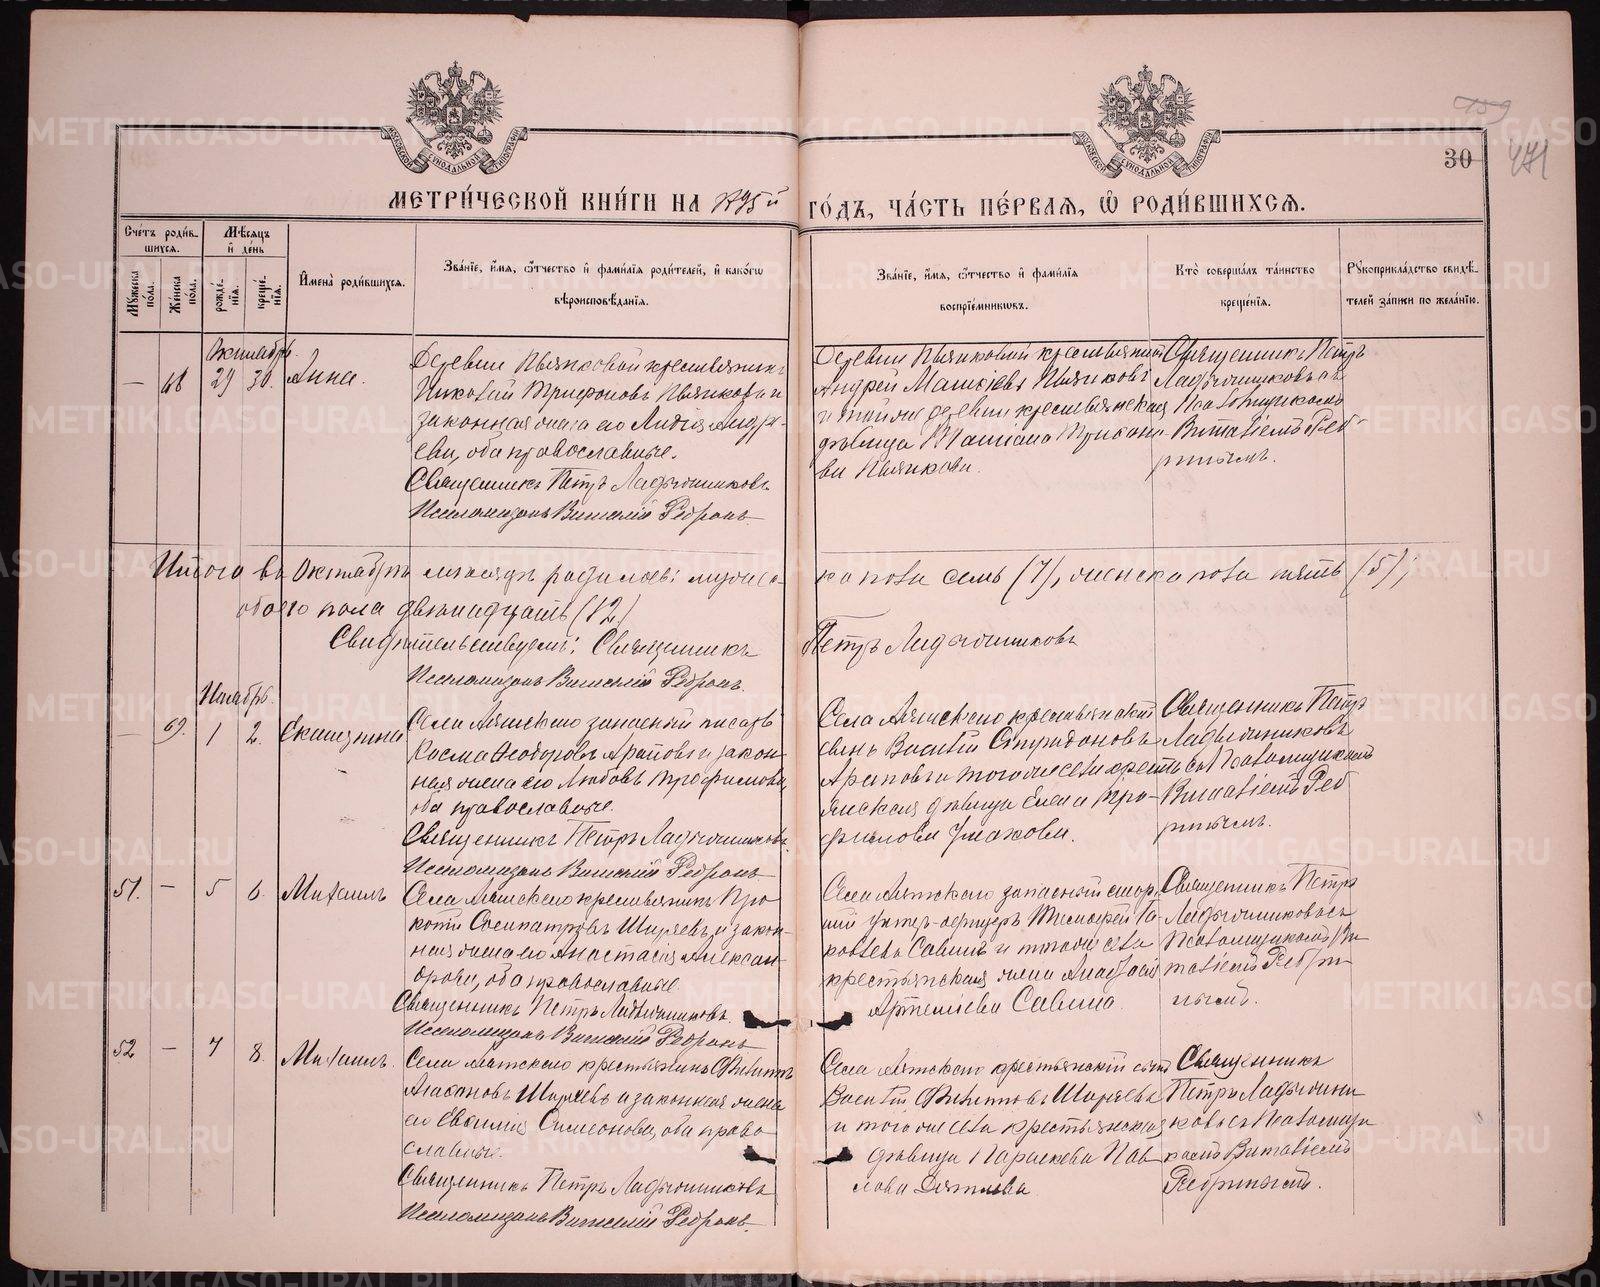 159
30
471
МЕТРИ́ЧЕСКОЙ КНИ́ГИ НА 1895й ГО́ДЪ, ЧА́СТЬ ПЕ́РВАЯ, Ѡ РОДИ́ВШИХСЯ.
Сче́тъ роди́вшихся.
Мѣ́сяцъ и де́нь
Мꙋ́жеска по́ла.
Же́нска по́ла.
рожде́нїя.
креще́нїя.
Имена̀ роди́вшихся.
Зва́нїе, и́мя, ѻ҆́тчество и фами́лїя роди́телей, и како́гѡ вѣроисповѣ́данїя.
Зва́нїе, и́мя, ѻ҆́тчество и фами́лїя воспрїе́мникѡвъ.
Кто̀ соверша́лъ та́инство креще́нїя.
Рꙋкоприкла́дство свидѣ́телей за́писи по жела́нїю.
Октябрь.
— 68 29 30. Анна.
Деревни Пьянковой крестьянинъ
Николай Трифоновъ Пьянковъ и
законная жена его Лидія Андре-
ева, оба православные.
Священникъ Петръ Ладыжниковъ
Псаломщикъ Виталій
Деревни Пьянковой крестьянинъ
Андрей Пьянковъ
и той же деревни крестьянская
дѣвица Татіана Трифоно-
ва Пьянкова.
Священникъ Петръ
Ладыжниковъ съ
Псаломщикомъ
Виталіемъ
Итого въ Октябрѣ мѣсяцѣ родилось: мужес-
ка пола семь (7), женска пола пять (5),
обоего пола двѣнадцать (12)
Свидѣтельствуемъ: Священникъ Петръ Ладыжниковъ
Псаломщикъ Виталій
Ноябрь.
— 69. 1 2. Екатерина
Села Аятскаго запасный писарь
Косма Ѳеодоровъ Араповъ и закон-
ная жена его Любовь Трофимова,
оба православные.
Священникъ Петръ Ладыжниковъ.
Псаломщикъ Виталій
Села Аятскаго крестьянскій
сынъ Василій Спиридоновъ
Араповъ и того же села кресть
янская дѣвица Елена Тро-
фимова Ушакова.
Священникъ Петръ
Ладыжниковъ
съ Псаломщикомъ
Виталіемъ
51. — 5 6. Михаилъ
Села Аятскаго крестьянинъ Про
копій Сосипатровъ Ширяевъ, и закон-
ная жена его Анастасія Алексан-
дрова, оба православные
Священникъ Петръ Ладыжниковъ.
Псаломщикъ Виталій
Села Аятскаго запасный стар-
шій унтеръ-офицеръ Тимофей Я-
ковлевъ Савинъ и того же села
крестьянская жена
Артеміева Савина
Священникъ Петръ
Ладыжниковъ съ
Псаломщикомъ Ви-
таліемъ
52 — 7 8. Михаилъ.
Села Аятскаго крестьянинъ Филиппъ
Агафоновъ Ширяевъ и законная жена
его Евфимія Симеонова, оба право
славные.
Священникъ Петръ Ладыжниковъ
Псаломщикъ Виталій
Села Аятскаго крестьянскій сынъ
Василій Филипповъ Ширяевъ
и того же села крестьянская
дѣвица Параскева Пав-
лова
Священникъ
Петръ Ладыжни
ковъ съ Псаломщи
комъ Виталіемъ
METRIKI.GASO-URAL.RU